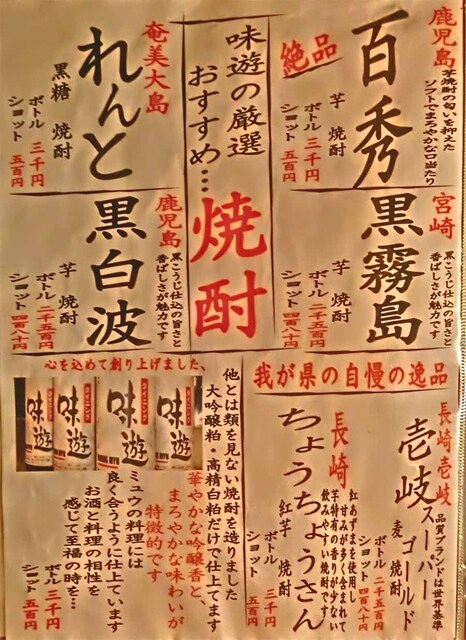 鹿児島
芋焼酎の匂いを抑えた
ソフトでまろやかな口当たり
百秀
絶品
芋 焼酎
ボトル 三千円
ショット 五百円
宮崎
黒こうじ仕込の旨さと
香ばしさが魅力です
黒霧島
芋 焼酎
ボトル 二千五百円
ショット 四百八十円
味遊の厳選
おすすめ…
焼酎
奄美大島
れんと
黒糖 焼酎
ボトル 三千円
ショット 五百円
鹿児島
黒こうじ仕込の旨さと
香ばしさが魅力です
黒白波
芋 焼酎
ボトル 二千五百円
ショット 四百八十円
我が県の自慢の逸品
長崎壱岐
品質ブランドは世界基準
壱岐スーパーゴールド
麦 焼酎
ボトル 二千五百円
ショット 四百八十円
長崎
紅あずまを使用し
甘みが多く含まれて
芋特有の香りが少ない
飲みやすい焼酎です
ちょうちょうさん
紅芋 焼酎
ボトル 三千円
ショット 五百円
心を込めて創り上げました、
味遊
味遊
味遊
味遊
他とは類を見ない焼酎を造りました
大吟醸粕・高精白粕だけで仕上てます
華やかな吟醸香と、
まろやかな味わいが
特徴的です
ミュウの料理には
良く合うように仕上ています
お酒と料理の相性を
感じて至福の時を…
ボトル 三千円
ショット 五百円